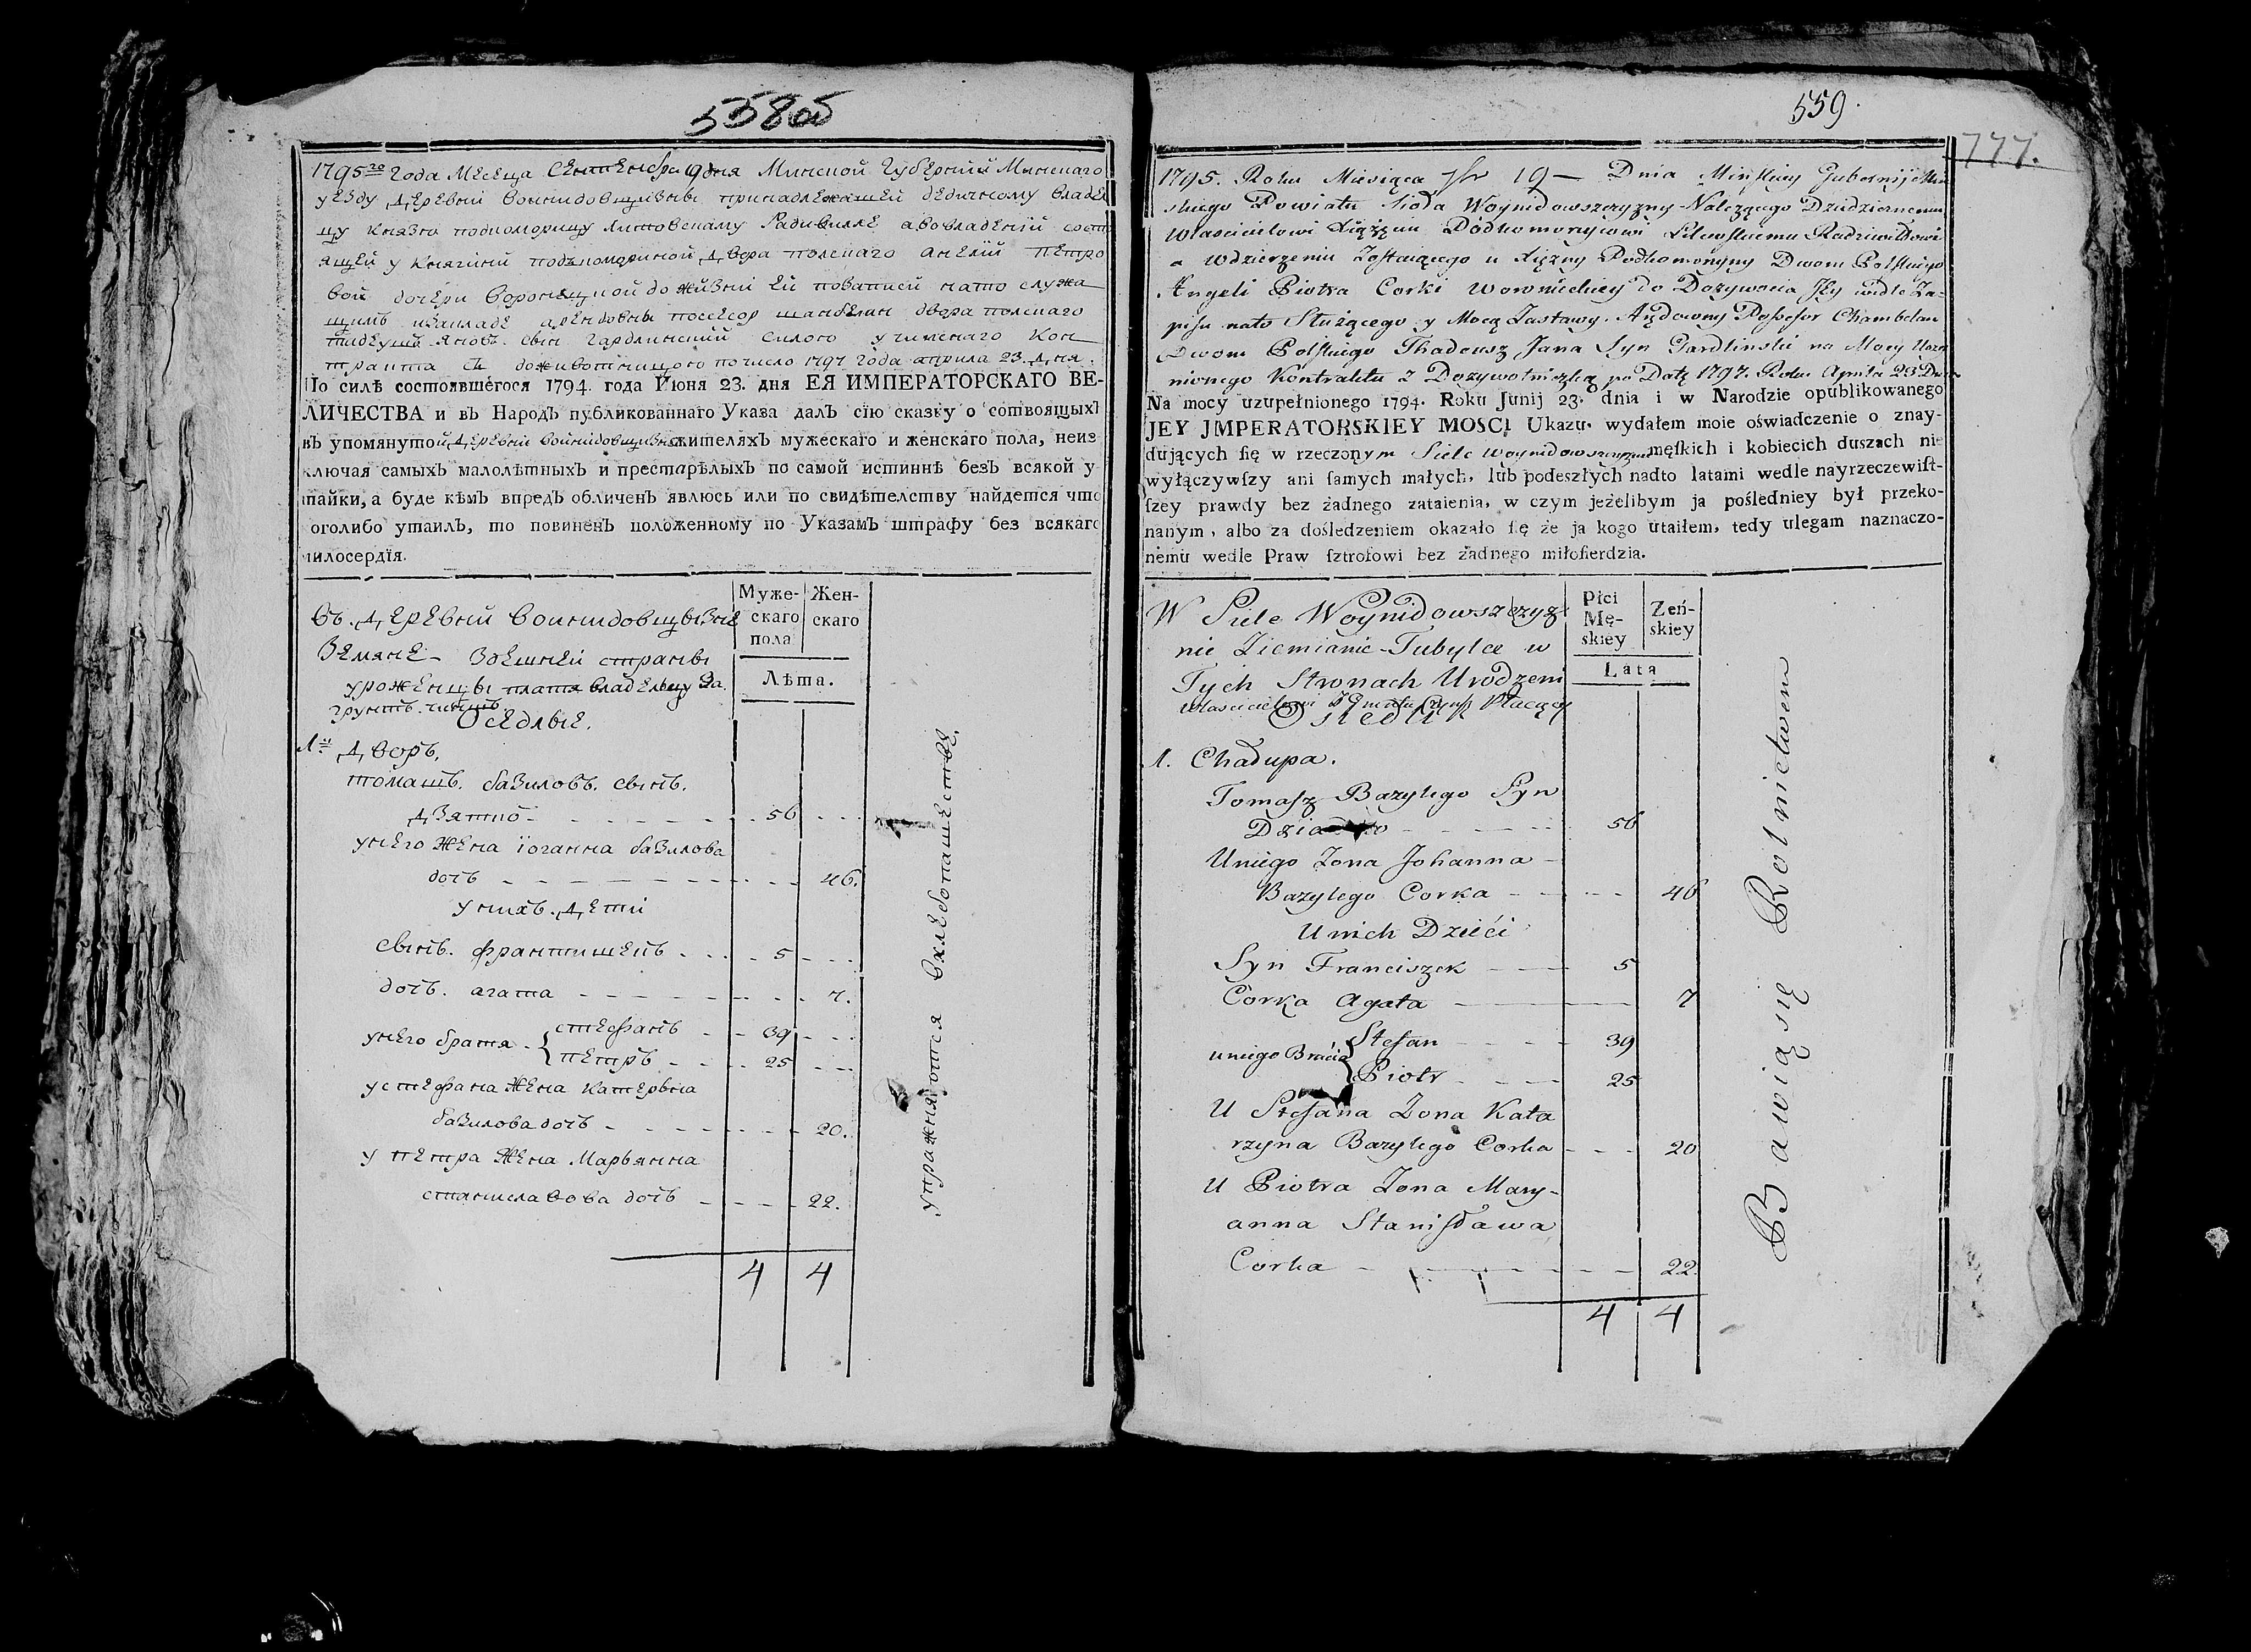 558об
1795го Года Месеца Сентебра 19 дня Минской Губерний Минскаго
уезду деревни Войнидовщизны принадлежащей дедичному владел
цу князю подкоморицу Литовскому Радивилле а во владений сост
ящей у княгини подкомориной Двора полскаго Анелий Петро
вой дочери до живни ей по записи на то служа
щимъ и в закладе арендовны посесор шамбелин двора полскаго
Тадеушъ Яновъ сынъ Гардлинский силою учиненаго Кон
тракта съ доживотницою по число 1797 Года априла 23 дня.
По силѣ состоявшегося 1794. года Июня 23. дня ЕЯ ИМПЕРАТОРСКАГО ВЕ-
ЛИЧЕСТВА и въ Народъ публикованнаго Указа далъ сїю сказку о сотвоящыхъ
въ упомянутой деревни Войнидовщизне жителяхъ мужескаго и женскаго пола, неиз
ключая самыхъ малолѣтныхъ и престарѣлыхъ по самой истиннѣ безъ всякой у
тайки, а буде кѣмъ впредъ обличенъ явлюсь или по свидѣтелству найдется что
оголибо утаилъ, то повиненъ положенному по Указамъ штрафу без всякаго
милосердїя.
Муже-
скаго
пола
Жен-
скаго
Лѣта.
Въ деревни Войнидовщизне
Земяне здешней страны
уроженцы платя владельцу за
грунтъ чиншъ
Оседлые.
1й Дворъ.
Томашъ. Базиловъ. сынъ.
Дзятко - 56
у него жена Иоганна Базилова
дочъ - 46.
у нихъ дети
сынъ. Франтишекъ - 5
дочъ. Агата - 7.
у него братя { Стефанъ - 39
Петръ - 25
у Стефана жена Катерына
Базилова дочъ - 20.
у Петра жена Марьянна
Станиславова дочъ - 22.
4 4
упражняются в хлебопашестве.
559.
777.
1795. Roku Miesiąca 7br 19 — Dnia Minskiey Gubernij Min
skiego Powiatu Sioła Woynidowszczyzny Nalezącego Dziedzicznemu
Własciielowi Xiążęciu Podkomorzycowi Litewskiemu Radziwiłłowi
a w dzierzeniu Zostaiącego u Xięzny Podkomorzyny Dworu Polskiego
Angeli Piotra Corki Woronieckiey do Dozywocia Jey wedle Za-
pisu na to Służącego y Mocą Zastawy. Arędowny Possesor Chambelan
Dworu Polskiego Thadeusz Jana Syn Gardlinski na Mocy Uczy
nionego Kontraktu z Dozywotniczką po Datę 1797. Roku Aprila 23 Dnia
Na mocy uzupełnionego 1794. Roku Junij 23. dnia i w Narodzie opublikowanego
JEY JMPERATORSKIEY MOSCI Ukazu. wydałem moie oświadczenie o znay-
dujących ſię w rzeczonym Siele Woynidowszczyznie męſkich i kobiecich duszach nie
wyłączywſzy ani ſamych małych, lub podeszłych nadto latami wedle nayrzeczewiſt-
ſzey prawdy bez żadnego zataienia, w czym jeżelibym ja pośledniey był przeko-
nanym, albo za dośledzeniem okazało ſię że ja kogo utaiłem, tedy ulegam naznaczo-
nemu wedle Praw ſztrofowi bez żadnego miłoſierdzia.
Płci
Mę-
skiey
Zeń-
skiey
Lata
W Siele Woynidowszczyz
nie Ziemianie Tubylce w
Tych Stronach Urodzeni
Własciielowi z Gruntu Czynsz Płacący
Osiedli
1. Chałupa.
Tomasz Bazylego Syn
56
U niego Zona Johanna
Bazylego Corka - 46
U nich Dzieci
Syn Franciszek - 5
Corka Agata - 7
u niego Bracia { Stefan - 39
Piotr - 25
U Stefana Zona Kata
rzyna Bazylego Corka - 20
U Piotra Zona Mary-
anna Stanisława
Corka - 22.
4 4
Bawią się Rolnictwem